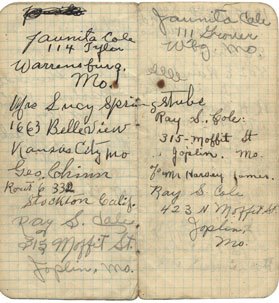 Jaunita Cole
114 Tyler
Warrensburg.
Mo.
Mrs Lucy Springstube
1663 Belleview
Kansas City Mo
Geo. Chinn
Rout 6 332
Stockton Calif.
Ray S. Cole
315 Moffit St.
Joplin, Mo.
Jaunita Cole
111 Grover
Wbg. Mo.
Ray S. Cole.
315- Moffit St
Joplin. Mo.
Mr Harvay James.
Ray S Cole
423 N Moffit St
Joplin
Mo.